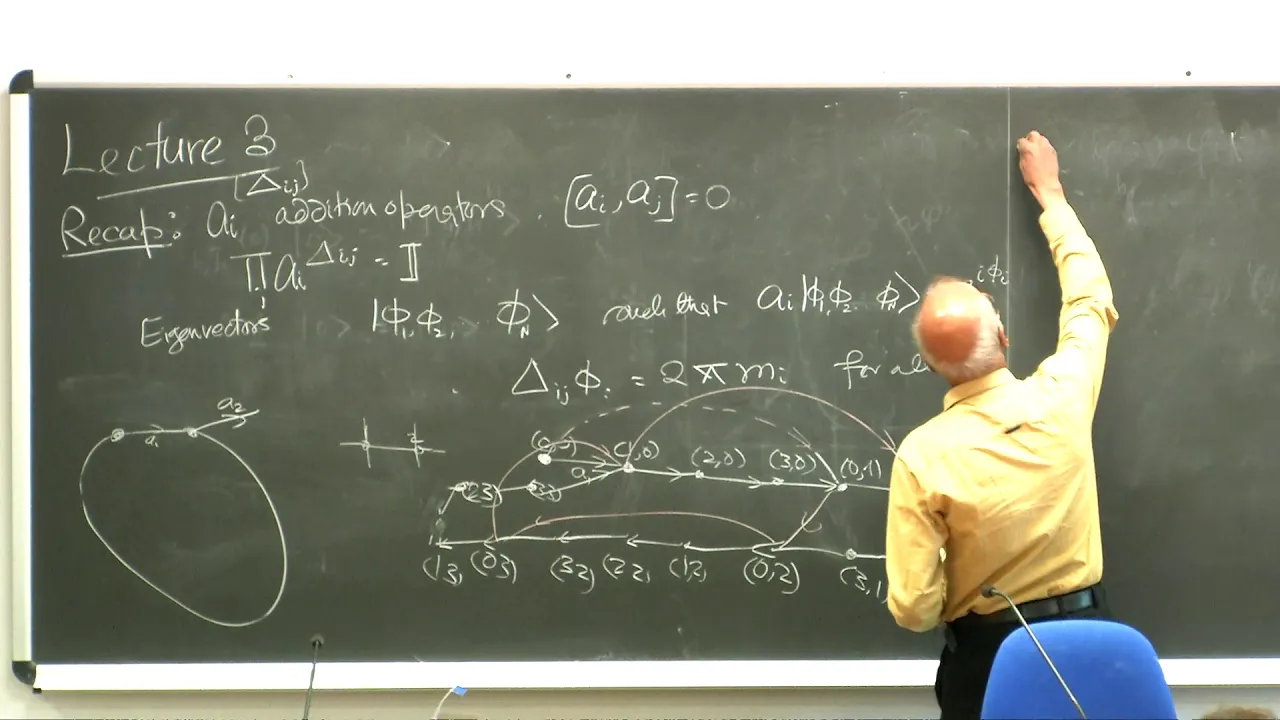 Lecture 3
[Δij]
Recap: ai addition operators. [ai, aj] = 0
∏i ai^Δij = I
Eigenvectors |ϕ1, ϕ2, ϕN> such that ai |ϕ1, ϕ2.. ϕN> e^iϕi
Δij ϕj = 2π mi for
a1 a2
(1,0) (2,0) (3,0) (0,1)
(13, (03) (32) (22, (12, (0,2) (3,1